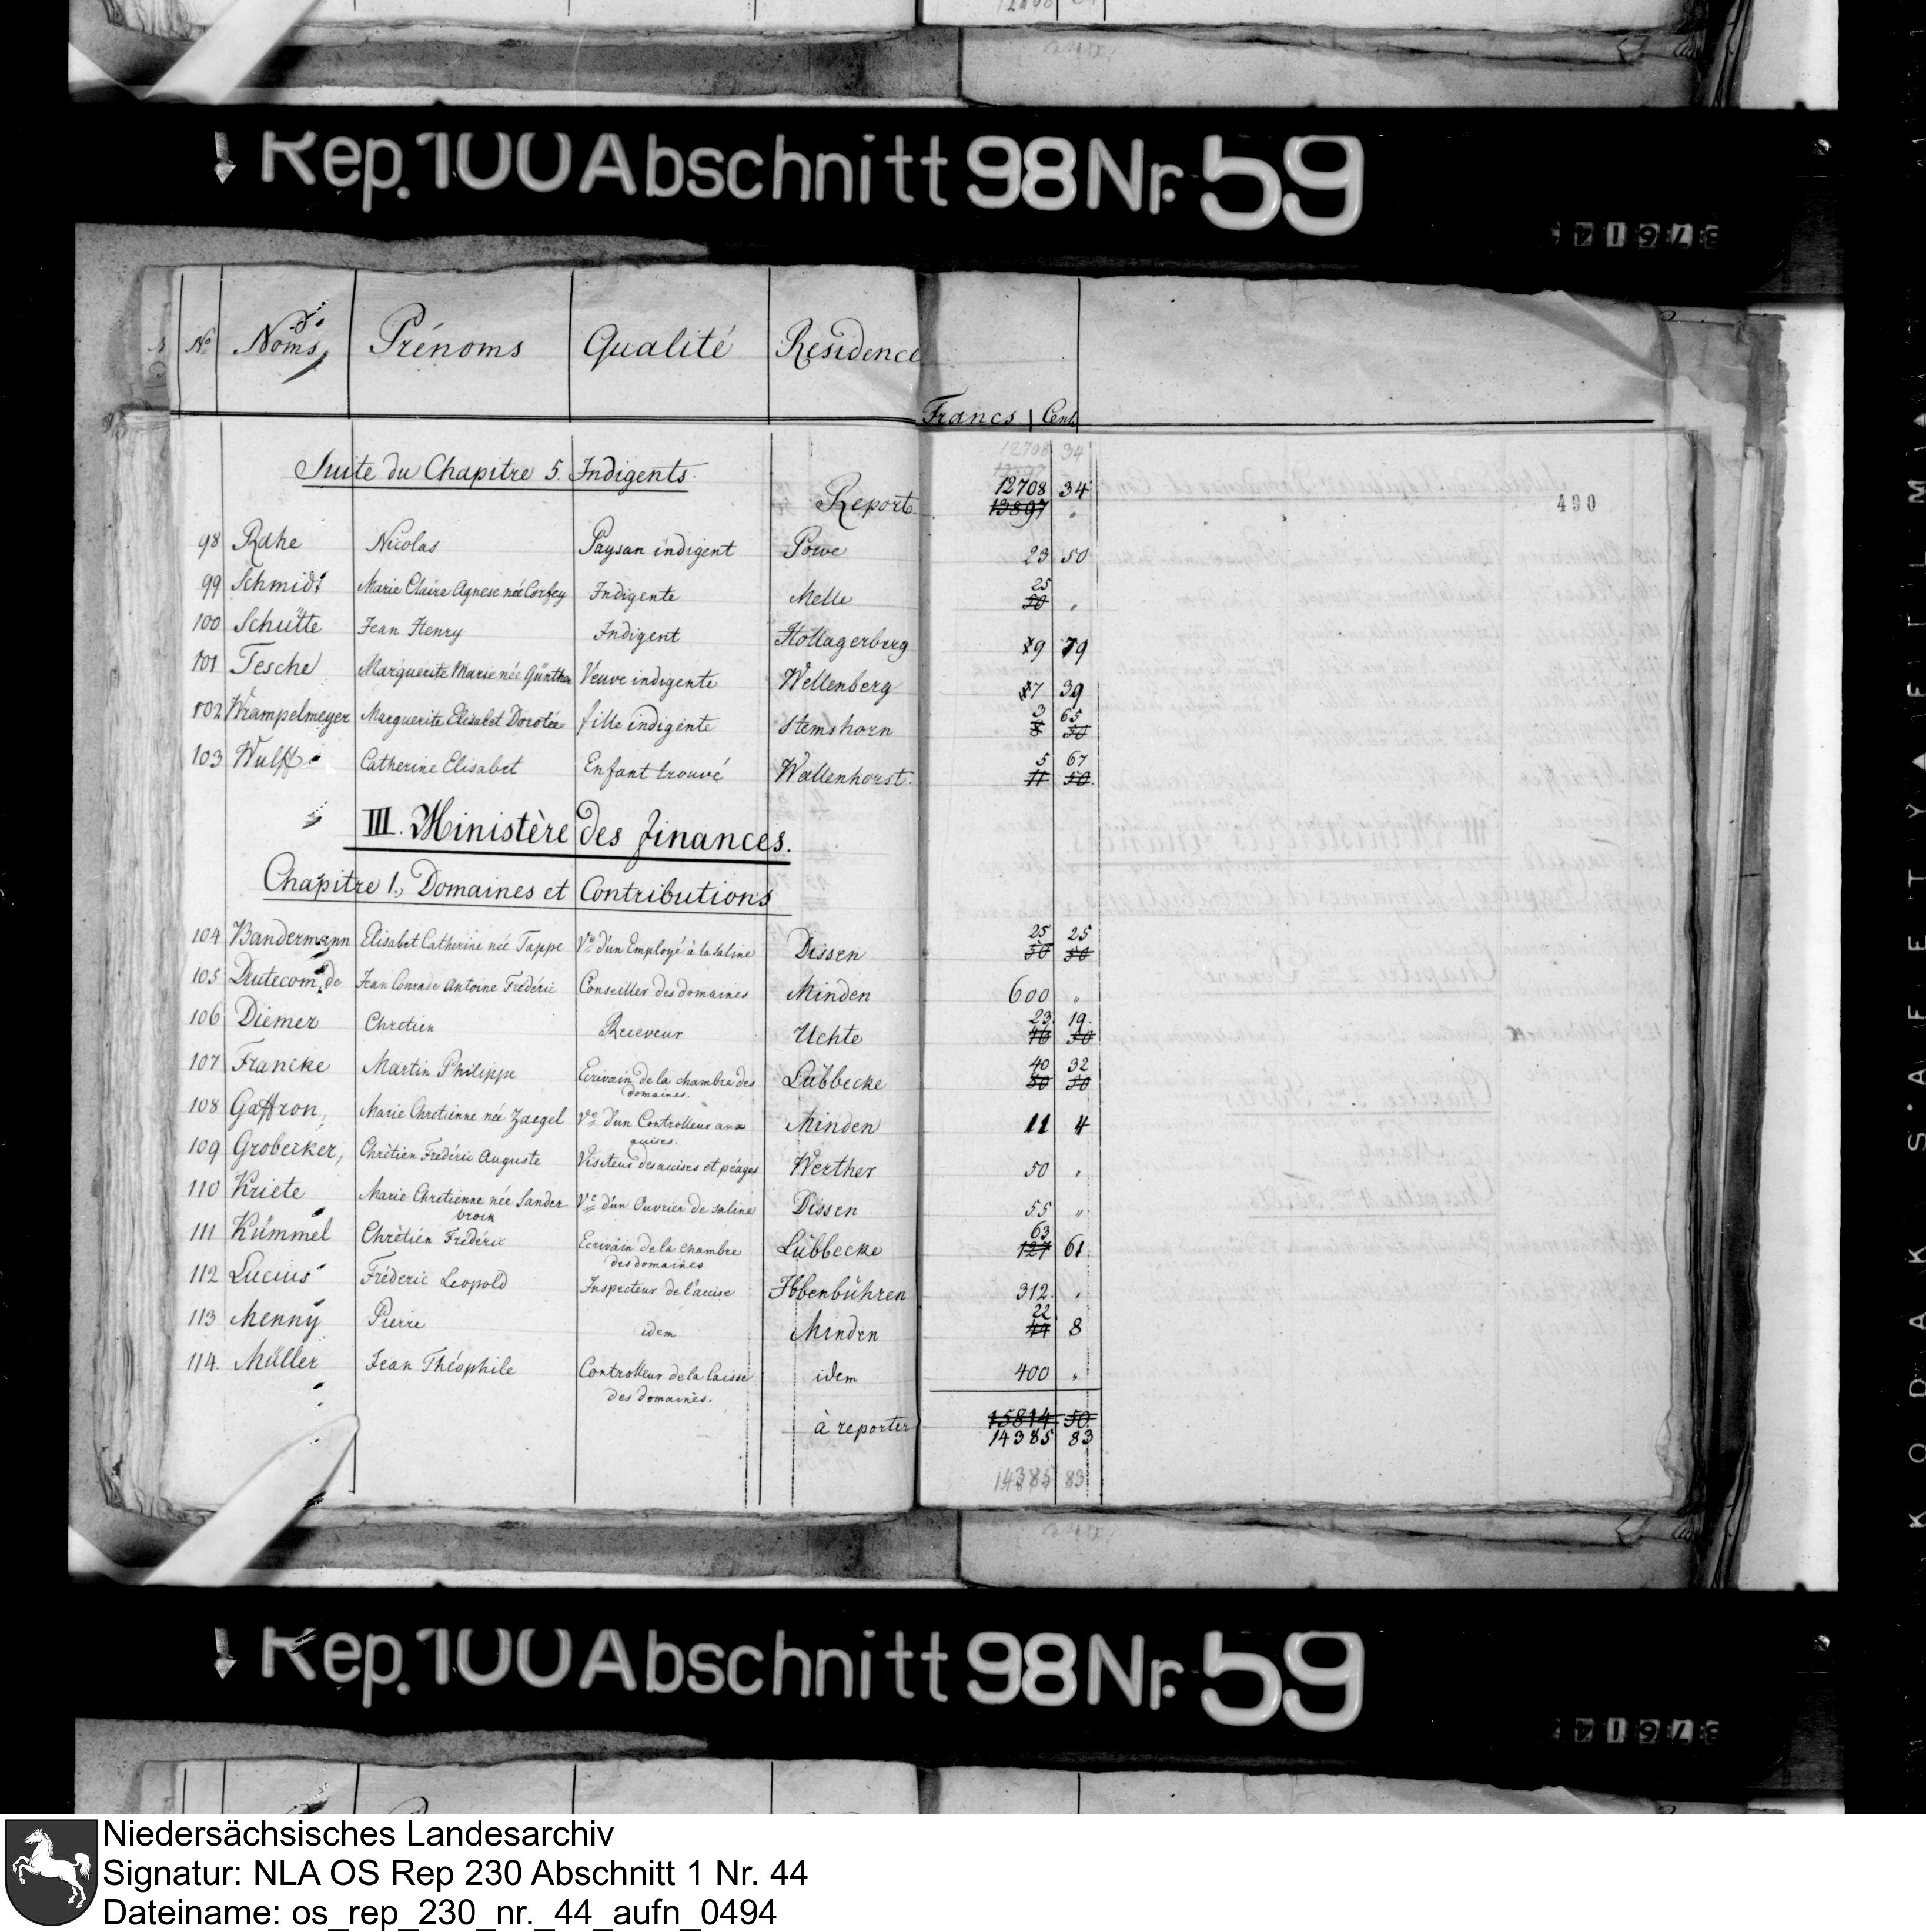 Rep. 100 Abschnitt 98 Nr. 59
No Noms Prénoms Qualité Residence
Francs Cent.
12708 34
Suite du Chapitre 5. Indigents.
12708 34
Report. 13897 "
490
98 Rahe Nicolas Paysan indigent Powe 23 50
25
99 Schmidt Marie Claire Agnese née Corfey Indigente Melle 50 "
100 Schütte Jean Henry Indigent Hollagerberg 9 79
101 Tesche Marguerite Marie née Günther Veuve indigente Wellenberg 7 39
3 65
102 Wrampelmeyer Marguerite Elisabet Dorotée fille indigente Stemshorn
5 67
103 Wulff Catherine Elisabet Enfant trouvé Wallenhorst. 11 50.
III. Ministère des finances.
Chapitre 1., Domaines et Contributions
25 25
104 Bandermann Elisabet Catherine née Tappe Ve d'un Employé à la saline Dissen 50 50
105 Deutecom, de Jean Conrade Antoine Fréderic Conseiller des domaines Minden 600 "
23 19
106 Diemer Chretien Receveur Uchte 46 50
40 32
107 Francke Martin Philippe Ecrivain de la chambre des Lübbecke 80 50
domaines.
108 Gaffron, Marie Chretienne née Zaegel Ve d'un Controlleur aux Minden 11 4
acises.
109 Grobecker, Chrètien Frédéric Auguste Visiteur des acises et péages Werther 50 "
110 Kriete Marie Chretienne née Sander Ve d'un Ouvrier de saline Dissen 55 "
brock
63
111 Kümmel Chrètien Fredéric Ecrivain de la chambre Lübbecke 127 61
des domaines
112 Lucius Fréderic Leopold Inspecteur de l'accise Ibbenbühren 312. "
22
113 Menny Pierre idem Minden 44 8
114. Müller Jean Théophile Controlleur de la Caisse idem 400 "
des domaines.
15814 50
à reporter
14385 83
14385 83
Rep. 100 Abschnitt 98 Nr. 59
KODAK SAFETY FILM
Niedersächsisches Landesarchiv
Signatur: NLA OS Rep 230 Abschnitt 1 Nr. 44
Dateiname: os_rep_230_nr._44_aufn_0494